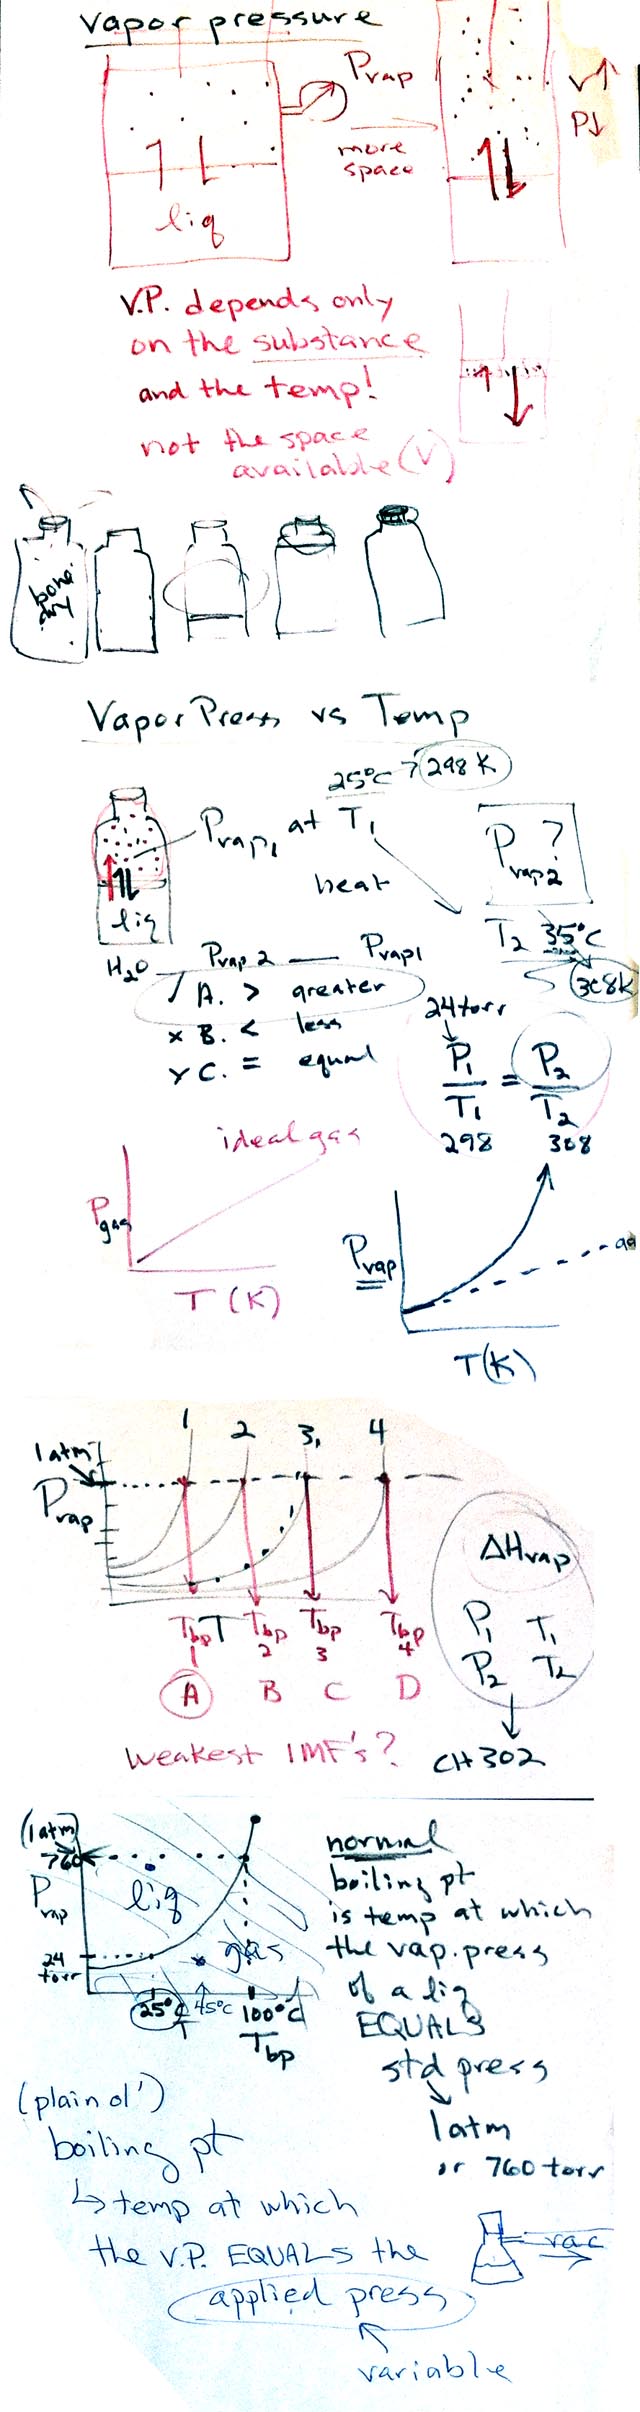 Vapor pressure
Pvap
more
space
V↑
P↓
liq
V.P. depends only
on the substance
and the temp!
not the space
available (V)
bone
dry
Vapor Press vs Temp
25°C → 298 K
Pvap1 at T1
heat
Pvap2 ?
T2 35°C
308K
liq
H2O
Pvap2 ___ Pvap1
✓ A. > greater
x B. < less
x C. = equal
24 torr
P1/T1 = P2/T2
298 308
ideal gas
Pgas
T (K)
Pvap
T(K)
1 2 3 4
1 atm
Pvap
Tbp1 T Tbp2 Tbp3 Tbp4
A B C D
ΔHvap
P1 T1
P2 T2
CH302
weakest IMF's?
(1atm)
760
Pvap
24
torr
liq
gas
25°C 45°C 100°C
T
Tbp
normal
boiling pt
is temp at which
the vap. press
of a liq
EQUALS
std press
1 atm
or 760 torr
(plain ol')
boiling pt
↳ temp at which
the V.P. EQUALS the
applied press
variable
vac